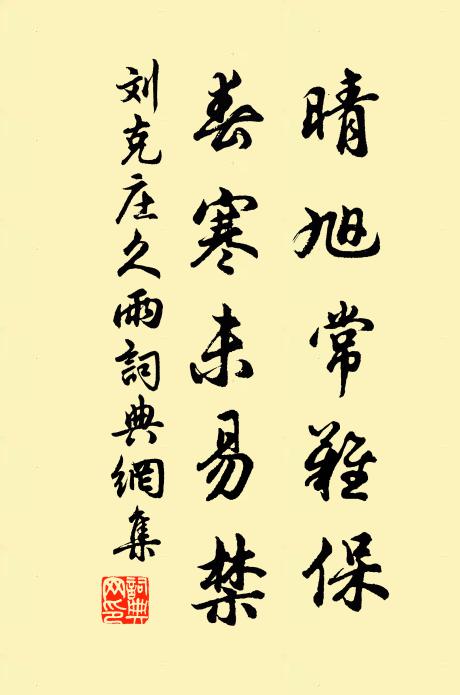 晴旭常難保
春寒未易禁
刘克庄久雨詞典網集
詞典網印